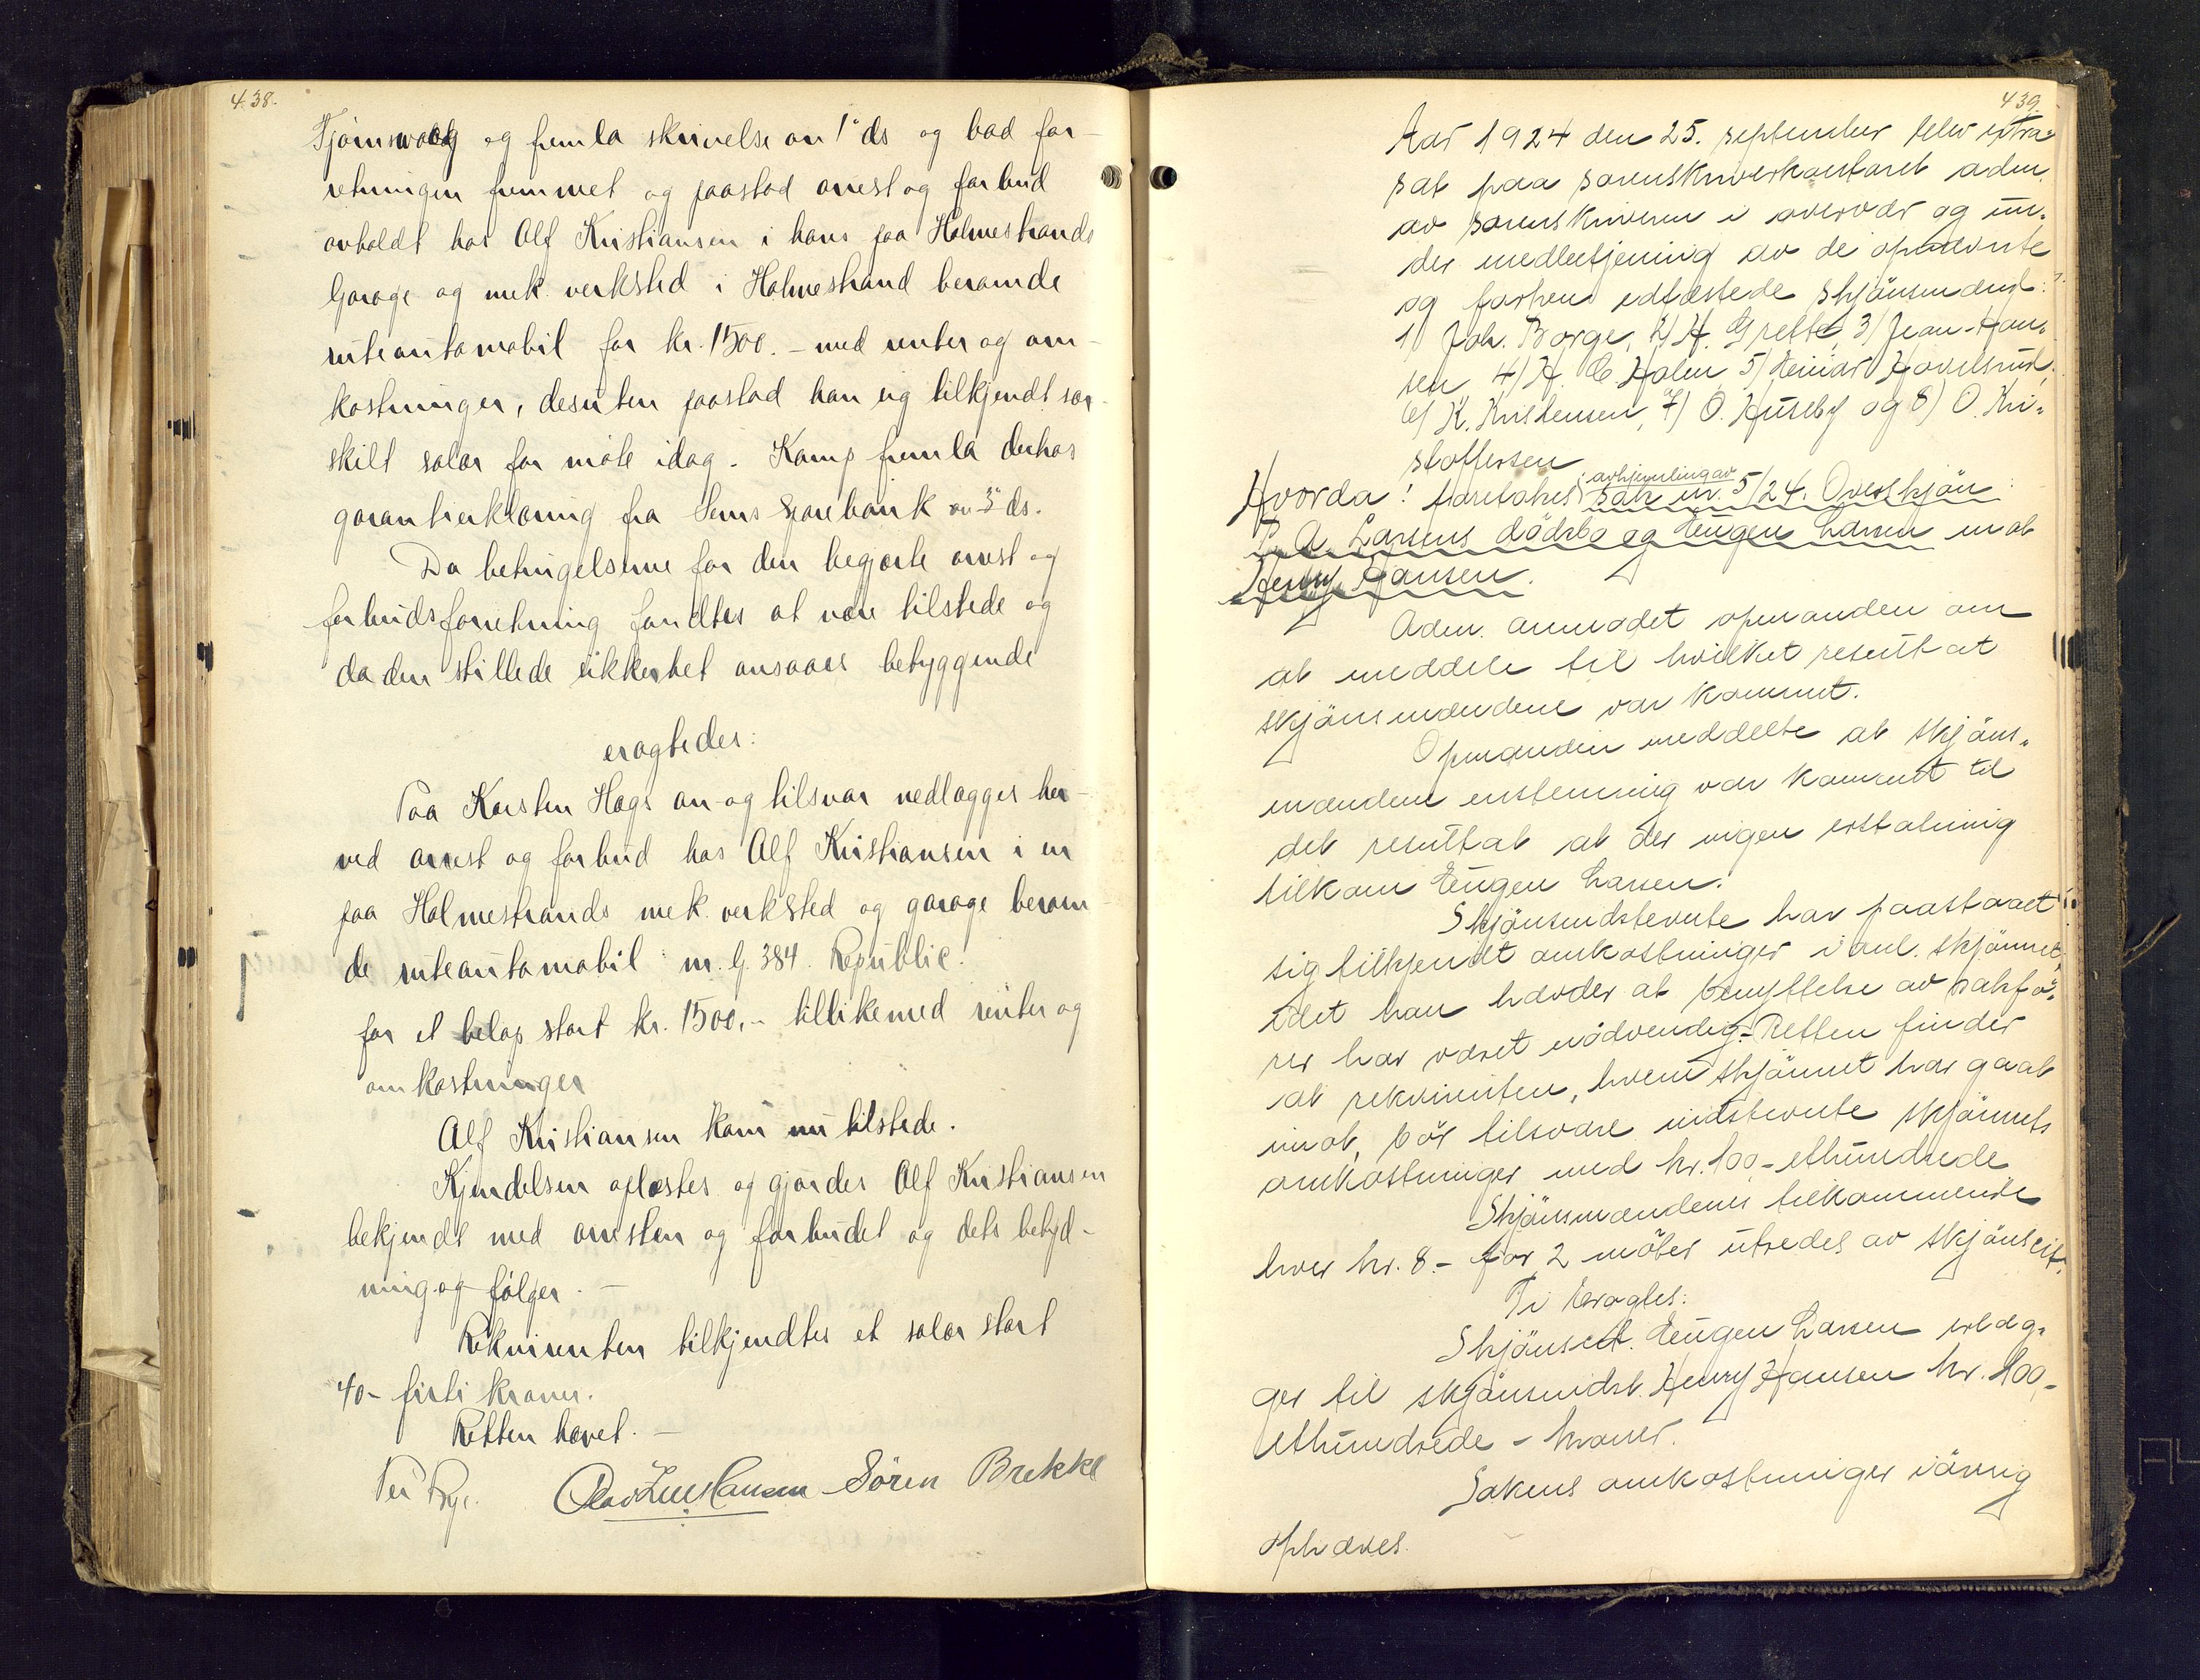 438.
Tjømsvaag og fremla skrivelse av 1ds og bad for-
retningen fremmet og paastod arrest og forbud
avholdt hos Alf Kristiansen i hans paa Holmestrands
Garage og mek. verksted i Holmestrand beroende
ruteautomobil for kr. 1500.- med renter og om-
kostninger, desuten paastod han sig tilkjendt sær-
skilt salær for møte idag. Kamp fremla derhos
garantierklæring fra Sems Sparebank av 3 ds.
Da betingelserne for den begjærte arrest og
forbudsforretning fandtes at være tilstede og
da den stillede sikkerhet ansaaes betryggende
eragtedes:
Paa Karsten Hogs an- og tilsvar nedlægges her-
ved arrest og forbud hos Alf Kristiansen i en
paa Holmestrands mek. verksted og garage beroen-
de ruteautomobil m. G. 384. Republic.
for et beløp stort kr. 1500.- tillikemed renter og
omkostninger
Alf Kristiansen kom nu tilstede.
Kjendelsen oplæstes og gjordes Alf Kristiansen
bekjendt med arresten og forbudet og dets betyd-
ning og følger. -
Rekvirenten tilkjendtes et salær stort
40- firti kroner.
Retten hævet. -
Søren Brekke
439.
Aar 1924 den 25. september blev extra-
ret sat paa sorenskriverkontoret adm.
av sorenskriveren i overvær og un-
der medbetjening av de opnævnte
og forhen edfæstede skjønsmænd:
1) Joh. Borge, 2) H. Grette, 3) Jean Han-
sen 4) H. C. Holm 5) Einar Havelsrud,
6) K. Kristensen, 7) O. Huseby og 8) O. Kri-
stoffersen
avhjemling av
Hvorda: foretokes sak nr. 5/24. Overskjøn:
P. A. Larsens dødsbo og Eugen Larsen mot
Henry Hansen.
Adm. anmodet opmanden om
at meddele til hvilket resultat
skjønsmændene var kommet.
Opmanden meddelte at skjøns-
mændene enstemmig var kommet til
det resultat at der ingen erstatning
tilkom Eugen Larsen.
Skjønsindstevnte har paastaaet
sig tilkjendt omkostninger i anl. skjønnet,
idet han hævder at benyttelse av sakfø-
rer har været nødvendig. Retten finder
at rekvirenten, hvem skjønnet har gaat
imot, bør tilsvare indstevnte skjønnets
omkostninger med kr. 100,- ethundrede
Skjønsmændenes tilkommende
hver kr. 8.- for 2 møter utredes av skjønscit.
Ti Eragtes:
Skjønscit. Eugen Larsen ilæg-
ges til skjønsindst. Henry Hansen kr. 100,-
ethundrede - kroner.
Sakens omkostninger iøvrig
ophæves.